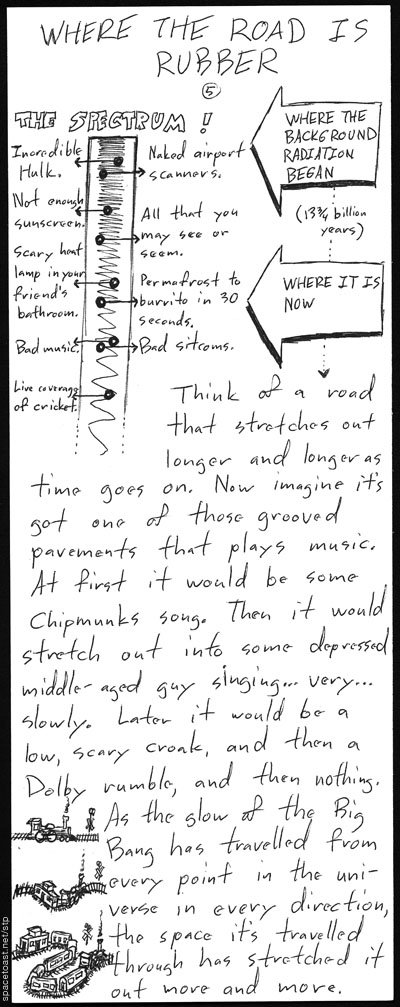 WHERE THE ROAD IS
RUBBER
5
THE SPECTRUM!
Incredible
Hulk.
Naked airport
scanners.
Not enough
sunscreen.
All that you
may see or
seem.
Scary heat
lamp in your
friend's
bathroom.
Permafrost to
burrito in 30
seconds.
Bad music.
Bad sitcoms.
Live coverage
of cricket.
WHERE THE
BACKGROUND
RADIATION
BEGAN
(13¾ billion
years)
WHERE IT IS
NOW
Think of a road
that stretches out
longer and longer as
time goes on. Now imagine it's
got one of those grooved
pavements that plays music.
At first it would be some
Chipmunks song. Then it would
stretch out into some depressed
middle-aged guy singing... very...
slowly. Later it would be a
low, scary croak, and then a
Dolby rumble, and then nothing.
As the glow of the Big
Bang has travelled from
every point in the uni-
verse in every direction,
the space it's travelled
through has stretched it
out more and more.
spacetoast.net/stp